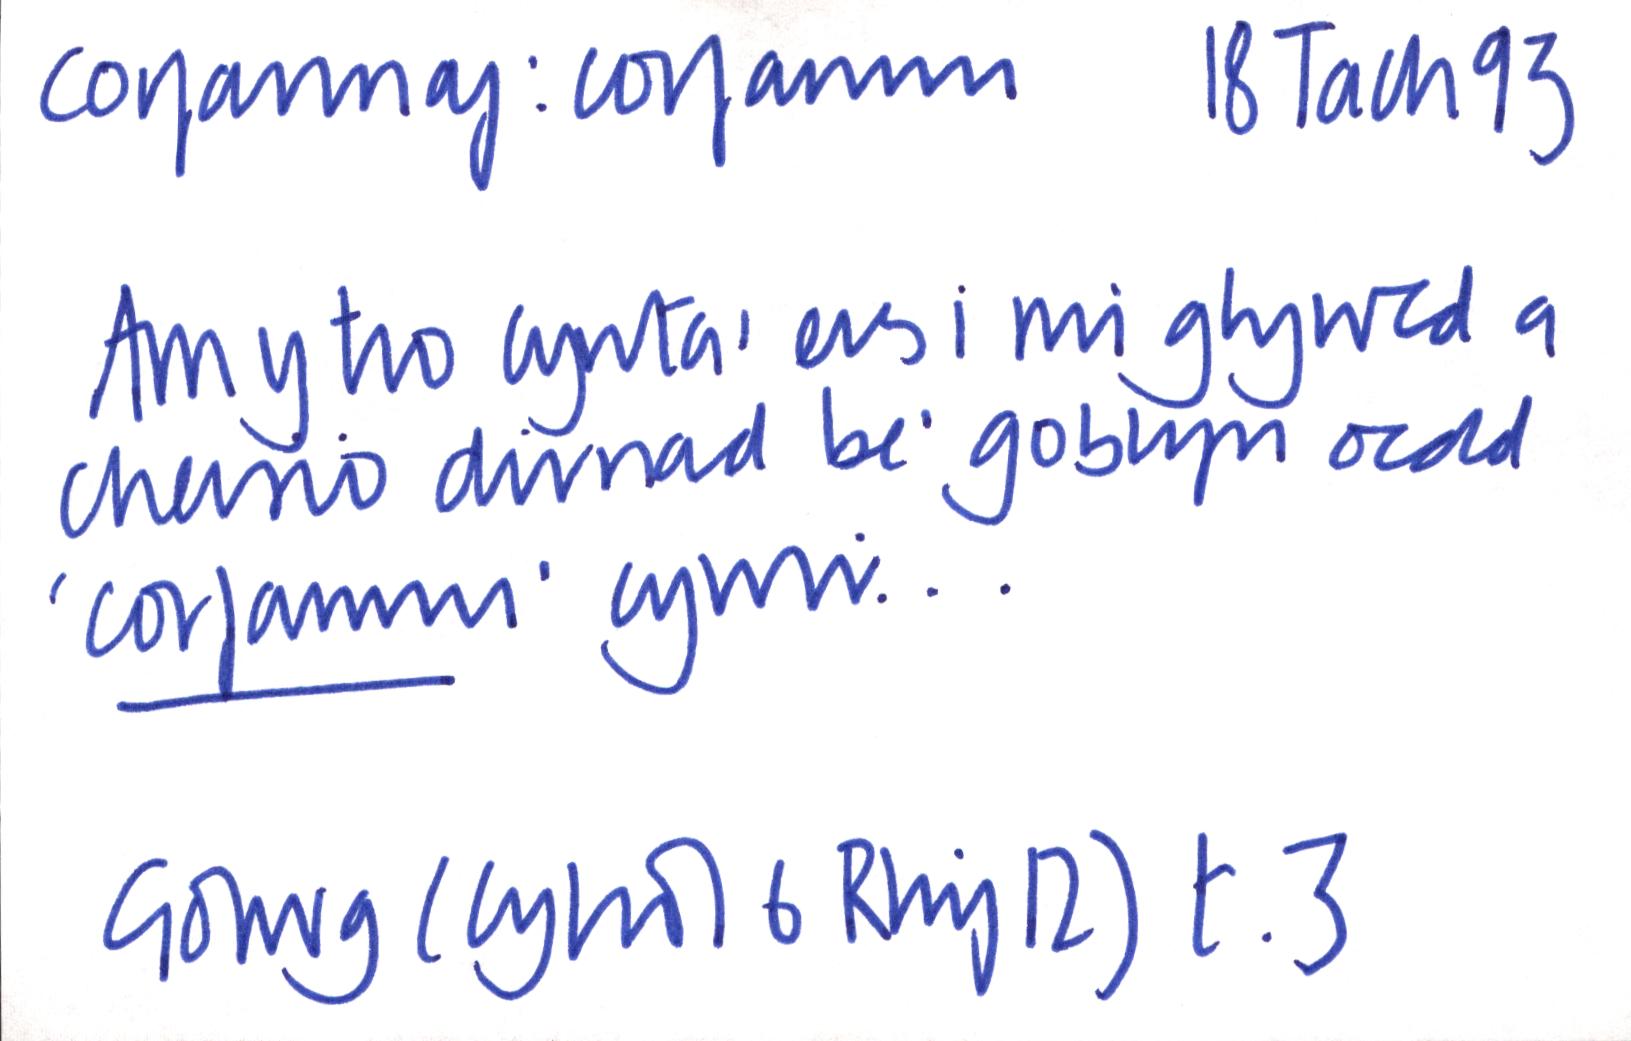 corfannaf : corfannu 18 Tach 93
Am y tro cynta' ers i mi glywed a
cheisio dirnad be' goblyn oedd
'corfannu' cywir...
Golwg (Cyfrol 6 Rhif 12) t. 3